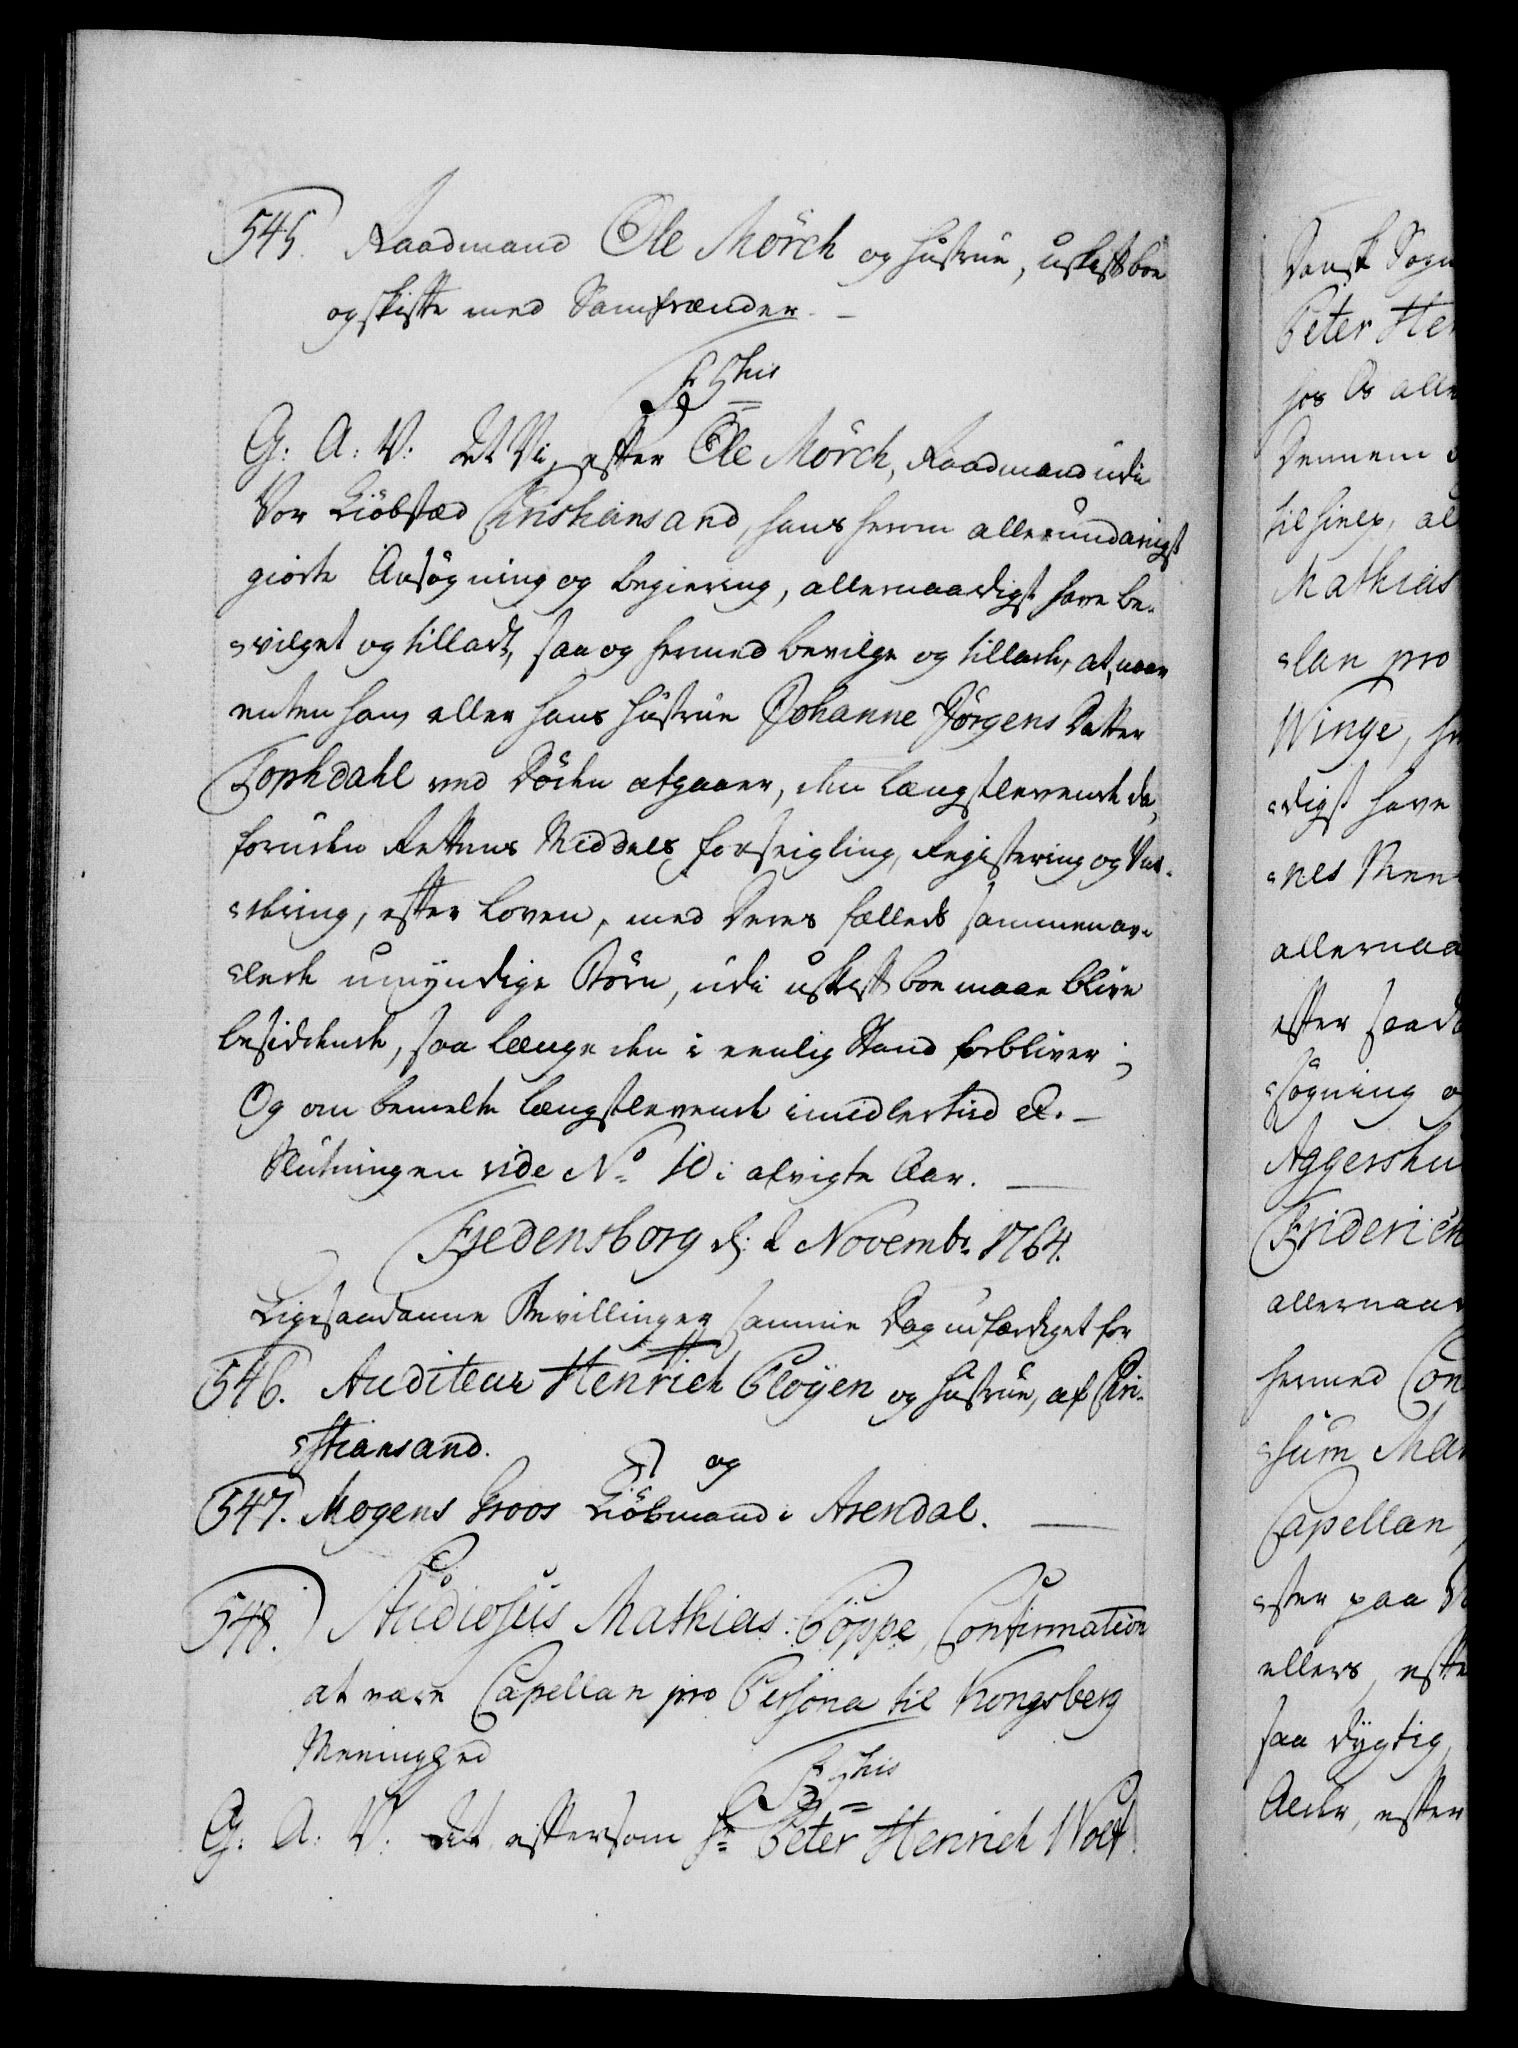 545. Raadmand Ole Mörch og Hustrue, uskift boe
og skifte med Samfrænder. —
F 5this
G: A: V: At Vi, efter Ole Mörch, Raadmand udi
Vor Kiöbstæd Christiansand, hans herom allerunderdanigst
giorte Ansögning og begiering, allernaadigst have be-
vilget og tilladt, saa og hermed bevilge og tillade, at, naar
enten hans eller hans Hustrue Johanne Jörgens Datter
Tophdahl ved Döden afgaaer, den længstlevende da,
foruden Rettens Middels Forseigling, Registering og Vur-
dering, efter Loven, med Deres fælleds sammenav-
lede umÿndige Börn, udi uskift boe maae blive
besiddende, saa længe den i eenlig Stand forbliver;
Og om bemelte længstlevende imedlertid &. —
Slutningen vide No 10 i afvigte Aar. —
Fredensborg d: 2 Novembr 1764.
Ligesaadanne Bevillinger samme Dag udfærdiget for
546. Auditeur Henrich Ploÿen og Hustrue, af Chri-
stiansand.
og
547. Mogens Groos Kiöbmand i Arendal. —
548. Studiosus Mathias Cöppe, Confirmation
at være Capellan pro Persona til Kongsberg
Meenighed
F 7this
G: A: V: At eftersom Hr Peter Henrich Wolf
Dansk Sogn
Peter Hen
hos Os alle
Dennem
til hielp, al
Mathias
lan pro
Winge, h
digst have
nes Meen
allernaa
efter saad
sögning o
Aggershu
Friderich
allernaa
hermed Con
sum Ma
Capellan
ster paa
ellers, efte
saa dÿgtig
Alder, efter